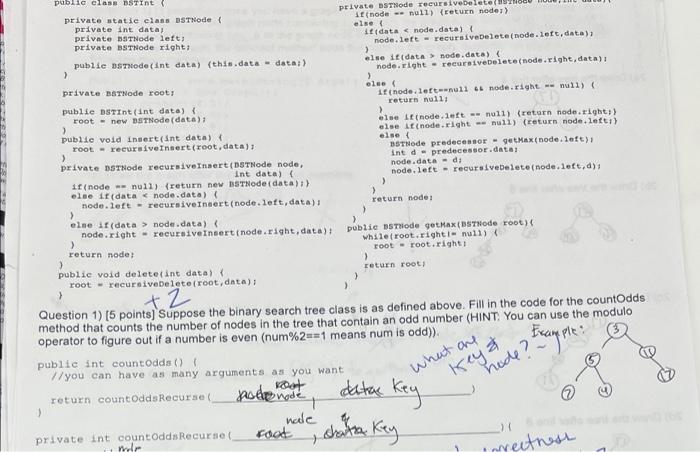 public class BSTInt {
private static class BSTNode {
private int data;
private BSTNode left;
private BSTNode right;
public BSTNode(int data) {this.data = data;}
}
private BSTNode root;
public BSTInt(int data) {
root = new BSTNode(data);
}
public void insert(int data) {
root = recursiveInsert(root,data);
}
private BSTNode recursiveInsert(BSTNode node,
int data) {
if(node == null) {return new BSTNode(data);}
else if(data < node.data) {
node.left = recursiveInsert(node.left,data);
}
else if(data > node.data) {
node.right = recursiveInsert(node.right,data);
}
return node;
}
public void delete(int data) {
root = recursiveDelete(root,data);
}
private BSTNode recursiveDelete(BSTNode
if(node == null) {return node;}
else {
if(data < node.data) {
node.left = recursiveDelete(node.left,data);
}
else if(data > node.data) {
node.right = recursiveDelete(node.right,data);
}
else {
if(node.left==null && node.right == null) {
return null;
}
else if(node.left == null) {return node.right;}
else if(node.right == null) {return node.left;}
else {
BSTNode predecessor = getMax(node.left);
int d = predecessor.data;
node.data = d;
node.left = recursiveDelete(node.left,d);
}
}
}
return node;
}
public BSTNode getMax(BSTNode root){
while(root.right!= null) {
root = root.right;
}
return root;
}
+2
Question 1) [5 points] Suppose the binary search tree class is as defined above. Fill in the code for the countOdds
method that counts the number of nodes in the tree that contain an odd number (HINT: You can use the modulo
operator to figure out if a number is even (num%2==1 means num is odd)).
Example:
3
5
7
what are
key &
node?
public int countOdds() {
//you can have as many arguments as you want
root
return countOddsRecurse( node, key )
}
node
private int countOddsRecurse( root , key ){
correctness